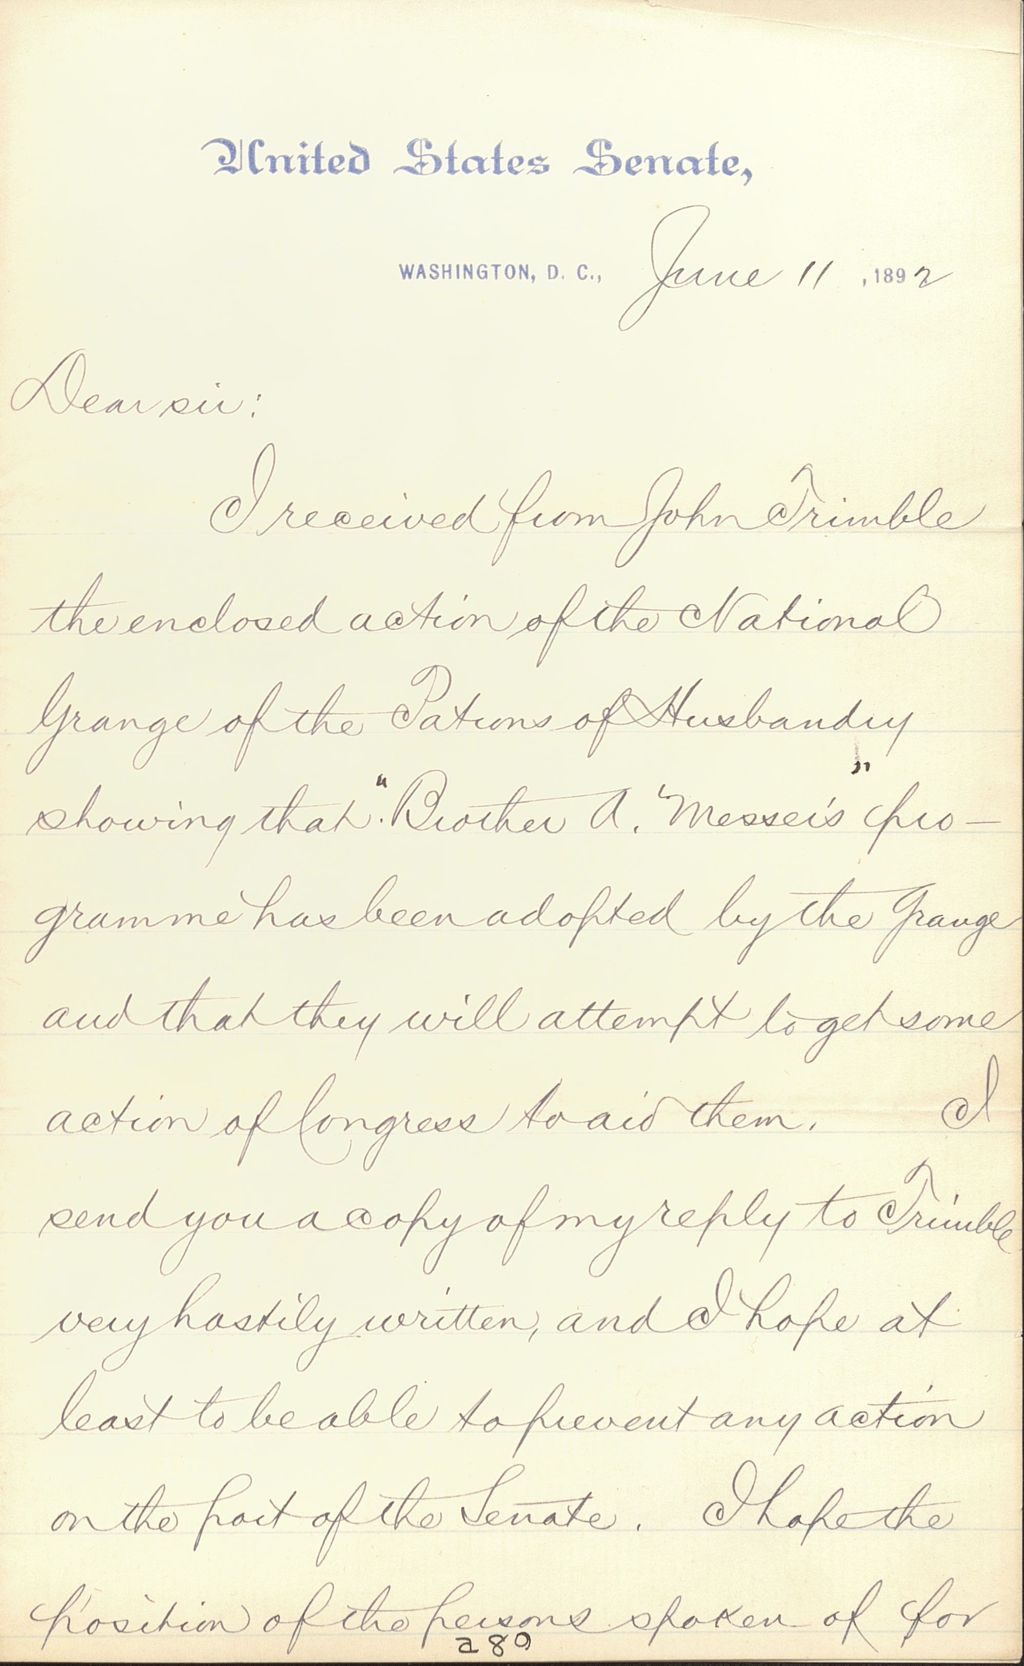 United States Senate,
WASHINGTON, D. C., June 11, 1892
Dear sir:
I received from John Trimble
the enclosed action of the National
Grange of the Patrons of Husbandry
showing that "Brother A. Messer's" pro-
gramme has been adopted by the Grange
and that they will attempt to get some
action of Congress to aid them. I
send you a copy of my reply to Trimble
very hastily written, and I hope at
least to be able to prevent any action
on the part of the Senate. I hope the
position of the persons spoken of for
289